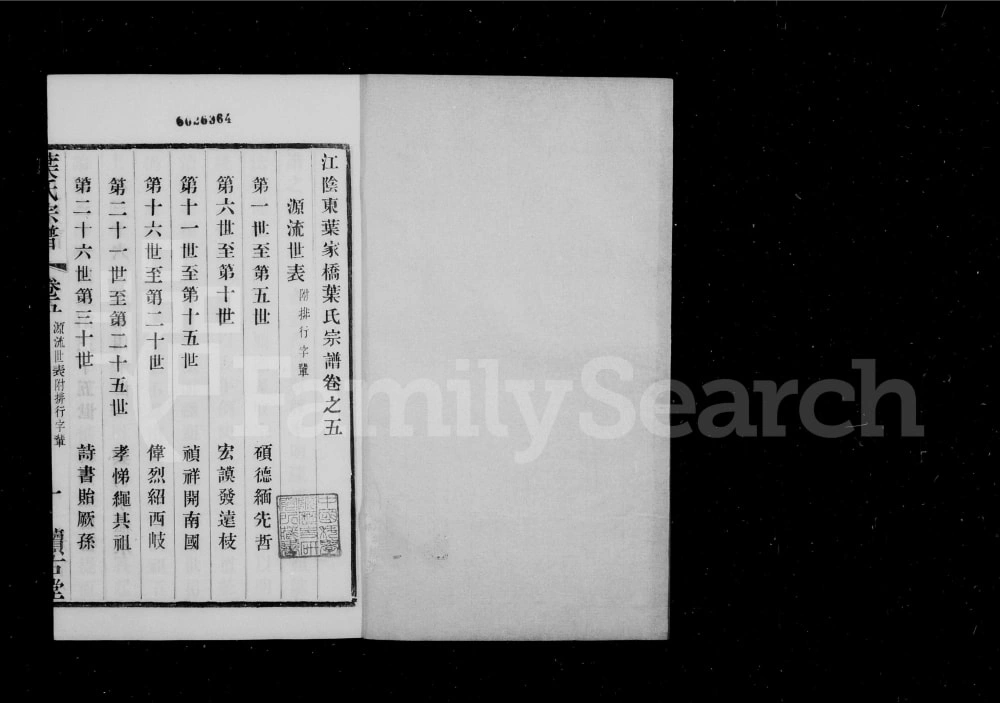 6026364
江陰東葉家橋葉氏宗譜卷之五
源流世表附排行字輩
第一世至第五世 碩德緬先哲
第六世至第十世 宏謨發達枝
第十一世至第十五世 禎祥開南國
第十六世至第二十世 偉烈紹西岐
第二十一世至第二十五世 孝悌繩其祖
第二十六世第三十世 詩書貽厥孫
葉氏宗譜 卷五 源流世表附排行字輩 一
FamilySearch